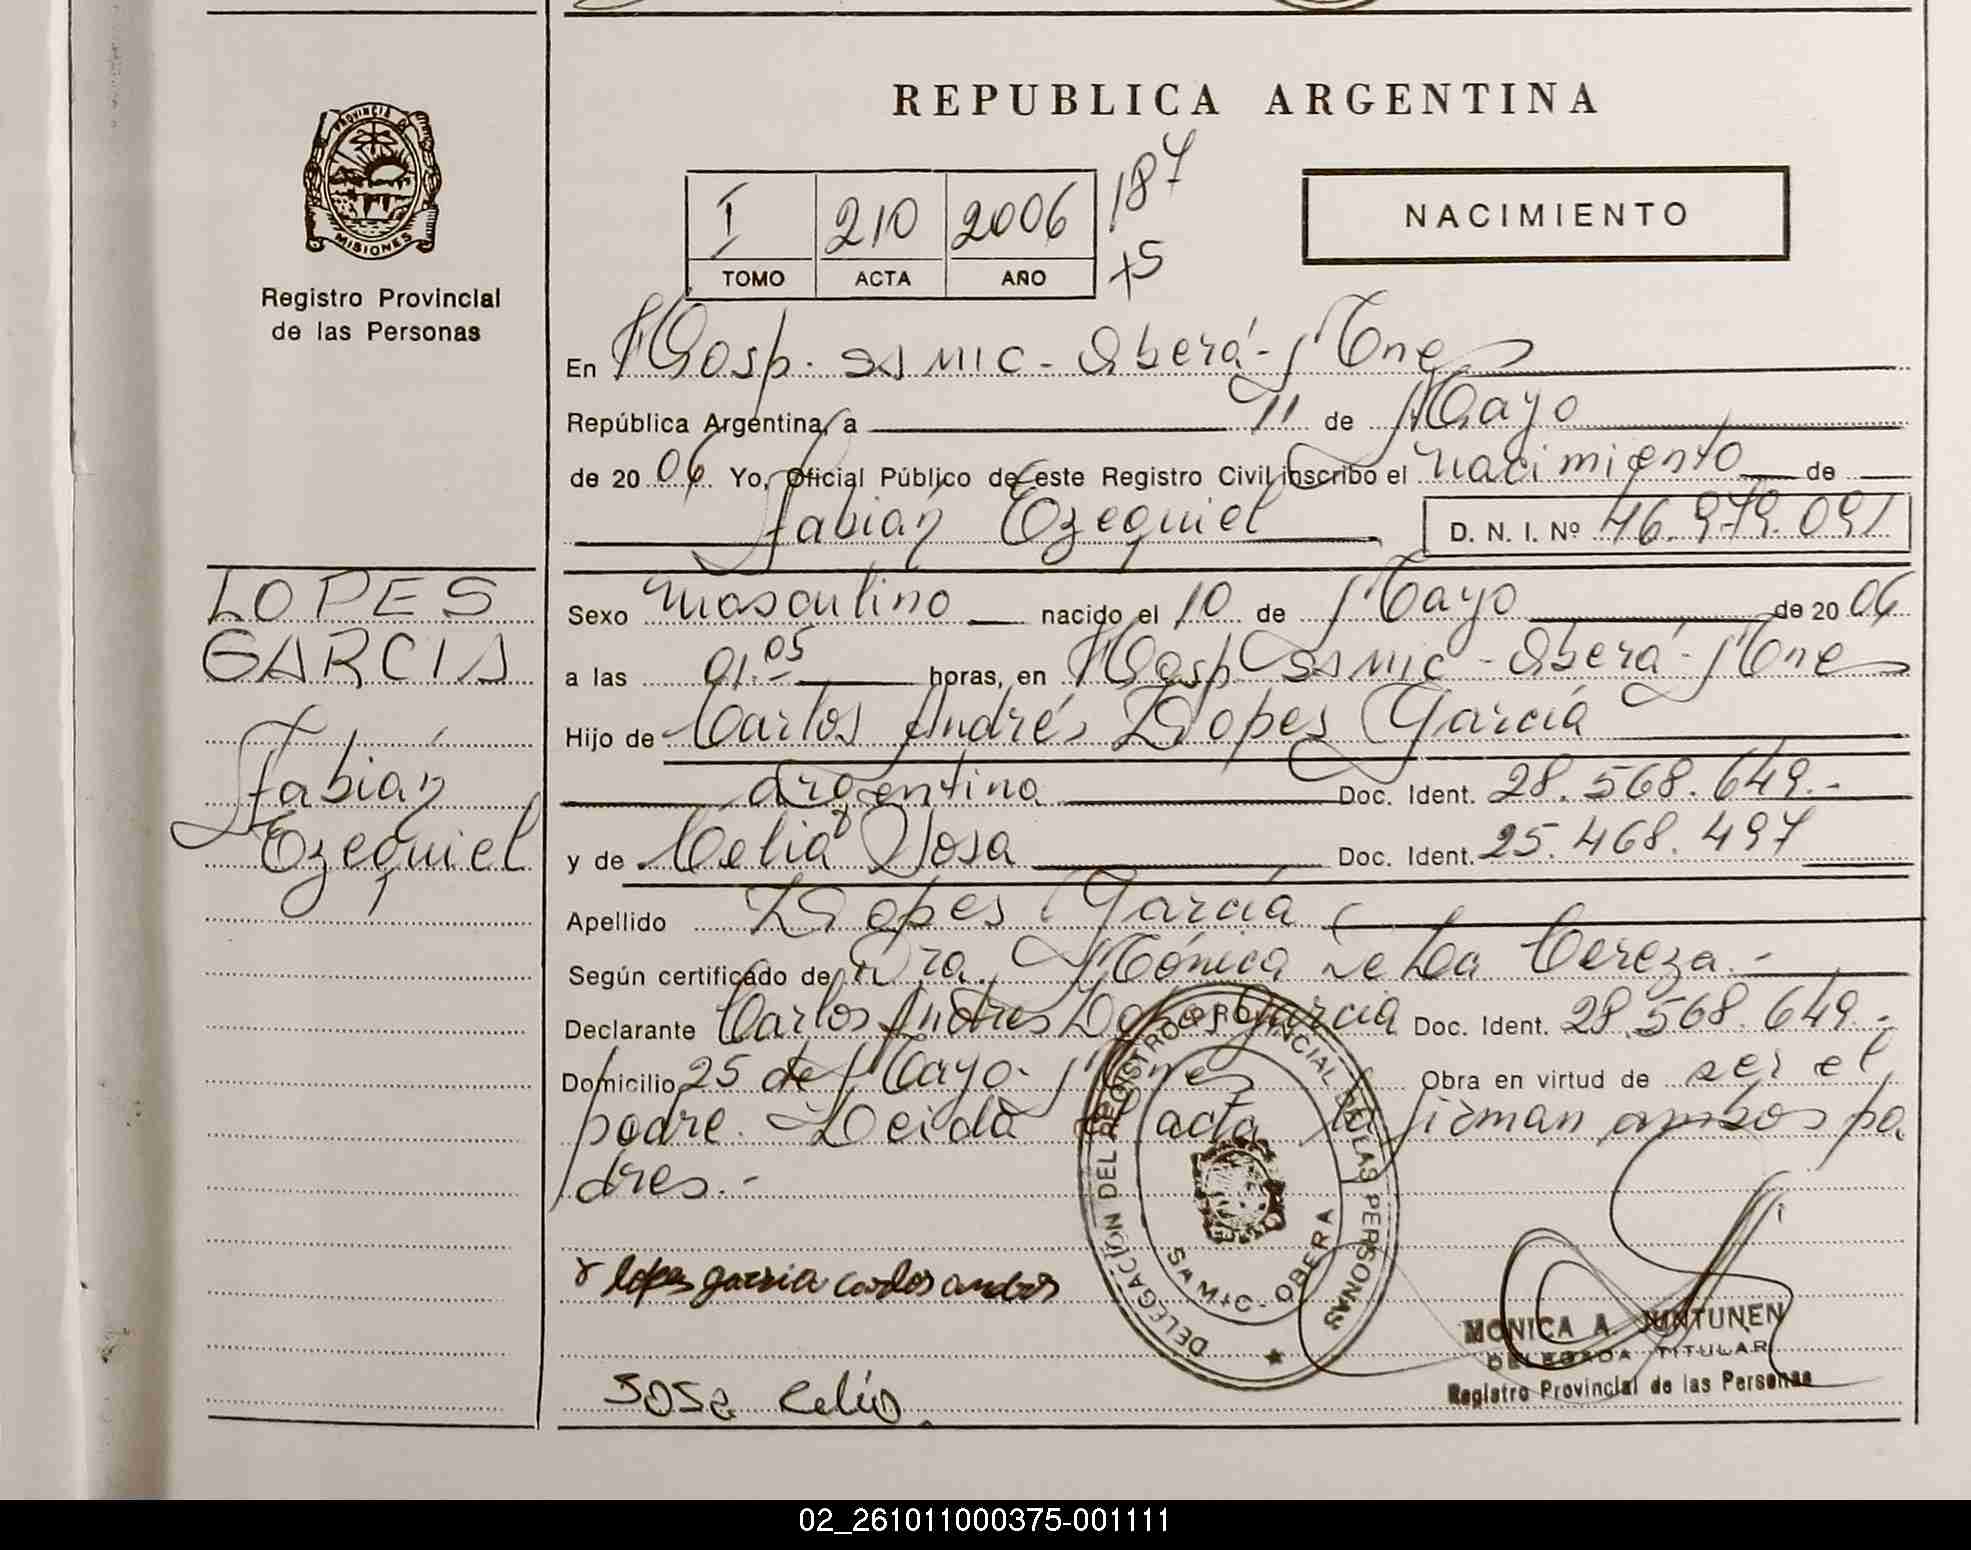 REPUBLICA ARGENTINA
PROVINCIA DE
MISIONES
Registro Provincial
de las Personas
I 210 2006 187
TOMO ACTA AÑO +5
NACIMIENTO
En Hosp. SAMIC - Oberá - Mnes
República Argentina, a 11 de Mayo
de 2006. Yo, Oficial Público de este Registro Civil inscribo el Nacimiento de
Fabián Ezequiel D. N. I. Nº 46.979.091
LOPES
GARCIA
Fabián
Ezequiel
Sexo Masculino nacido el 10 de Mayo de 2006
a las 01.05 horas, en Hosp SAMIC - Oberá - Mnes
Hijo de Carlos Andrés Lopes García
Argentino Doc. Ident. 28.568.649.-
y de Celia Sosa Doc. Ident. 25.468.497
Apellido Lopes García
Según certificado de Dra. Mónica De La Cereza.-
Declarante Carlos Andres Lopes Garcia Doc. Ident. 28.568.649.-
Domicilio 25 de Mayo - Mnes Obra en virtud de ser el
padre. Leida el acta la firman ambos pa
dres.-
DELEGACIÓN DEL REGISTRO PROVINCIAL DE LAS PERSONAS
SAMIC - OBERA
lopes garcia carlos andres
Sosa Celia.
MONICA A. JUNTUNEN
DELEGADA TITULAR
Registro Provincial de las Personas
02_261011000375-001111